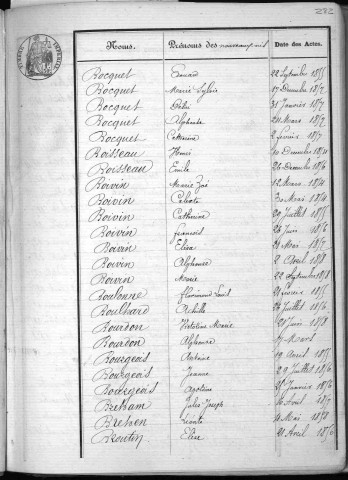 272
Noms. Prénoms des nouveaux-nés Date des Actes.
Bocquet Edouard 22 Septembre 1855
Bocquet Marie Sylvie 17 Décembre 187
Bocquet Délié 31 Janvier 187
Bocquet Alphonse 21 Mars 1857
Bocquet Catherine 2 février 187
Boisseau Henri 10 Décembre
Boisseau Emile 26 Décembre 1856
Boivin Marie Zoé 12 Mars 1854
Boivin Céleste 30 Mai
Boivin Catherine 20 Juillet 1855
Boivin françois 26 Juin 1856
Boivin Elisa 21 Mai 1857
Boivin Alphonse 2 Avril 1858
Boivin Marie 22 Septembre 1858
Boulonne florimond Louis 21 février 1855
Boulhard Achille 26 Juillet 1856
Bourdon Victorine Marie 20 Juin 1858
Bourdon Alphonse 17 Mars
Bourgeois Antoine 19 Avril 1855
Bourgeois Jeanne 29 Juillet 1856
Bourgeois 21 Janvier 1856
Bretham Jules Joseph 16 Avril 1857
Bretten Léonie 4 Mai 1858
Broutin Elise 21 Avril 1856